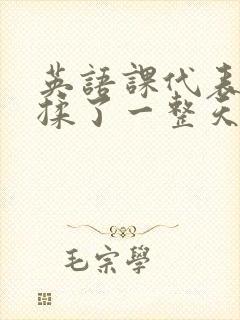 英語課代表
揉了一整天
毛宗學